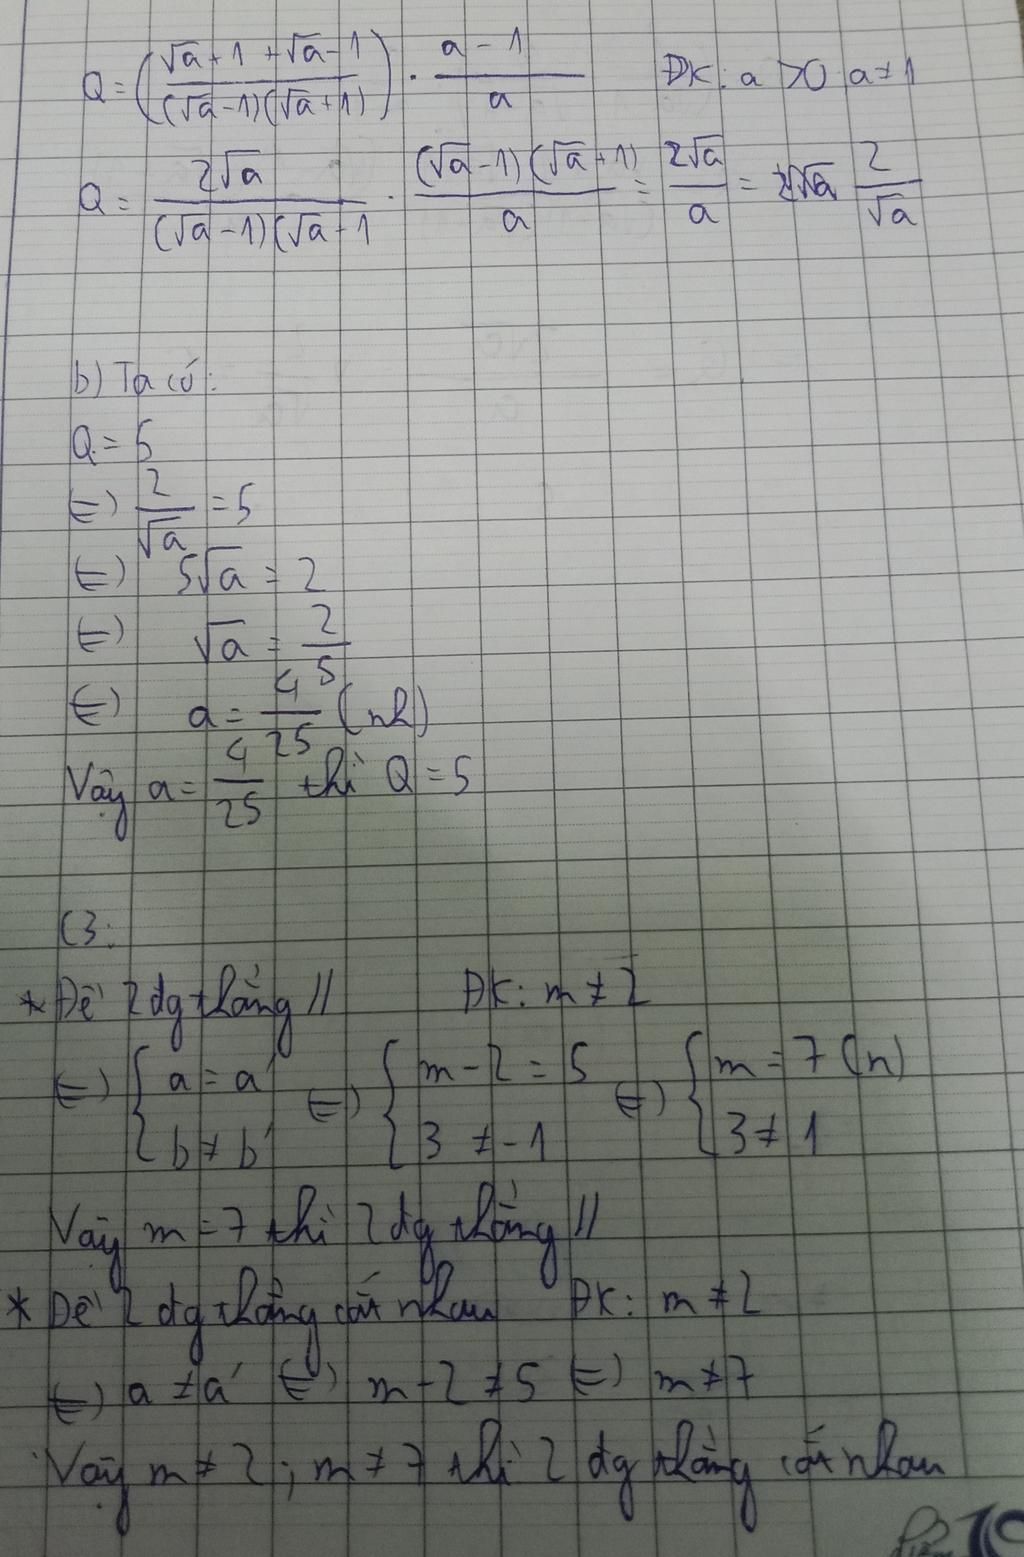 Q = ((√a + 1 + √a - 1) / ((√a - 1)(√a + 1))) · (a - 1) / a ĐK: a > 0 a ≠ 1
Q = 2√a / ((√a - 1)(√a + 1 · (√a - 1)(√a + 1) / a = 2√a / a = 2 / √a
b) Ta có:
Q = 5
⇔ 2 / √a = 5
⇔ 5√a = 2
⇔ √a = 2 / 5
⇔ a = 4 / 25 (nh)
Vậy a = 4 / 25 thì Q = 5
C3:
* Để 2 đg thẳng // ĐK: m ≠ 2
⇔ { a = a' ; b ≠ b' ⇔ { m - 2 = 5 ; 3 ≠ -1 ⇔ { m = 7 (n) ; 3 ≠ 1
Vậy m = 7 thì 2 đg thẳng //
* Để 2 đg thẳng cắt nhau ĐK: m ≠ 2
⇔ a ≠ a' ⇔ m - 2 ≠ 5 ⇔ m ≠ 7
Vậy m ≠ 2 ; m ≠ 7 thì 2 đg thẳng cắt nhau